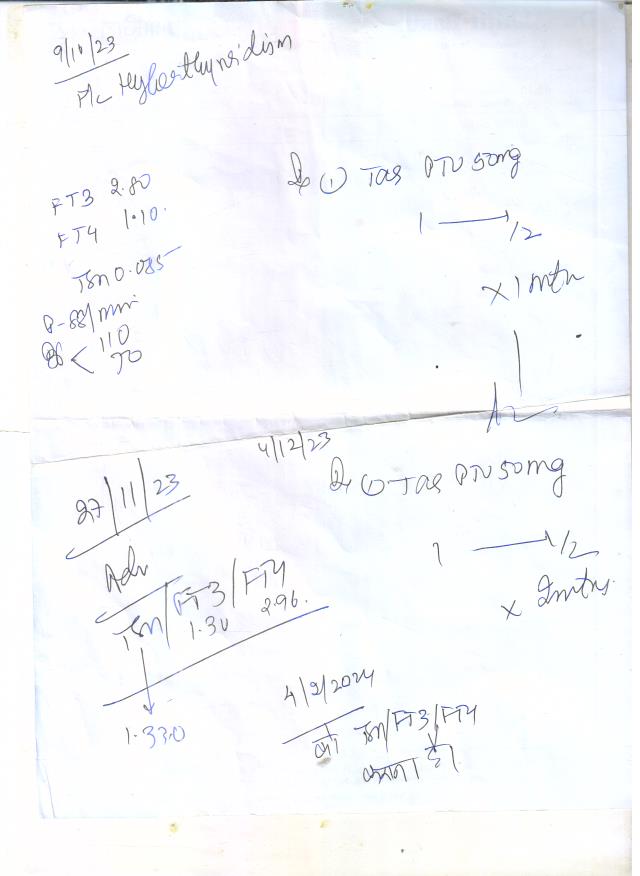 9/10/23
F/c Hyperthyroidism
FT3 2.80
FT4 1.10.
TSH 0.085
P-88/min
BP < 110
70
Rx ① Tab PTU 50mg
1 → 1/2
x 1 mth
27/11/23
Adv
TSH/FT3/FT4
1.30 2.96.
1.330
4/12/23
Rx ① Tab PTU 50mg
1 → 1/2
x 2mths.
4/2/2024
को TSH/FT3/FT4
कराना है।